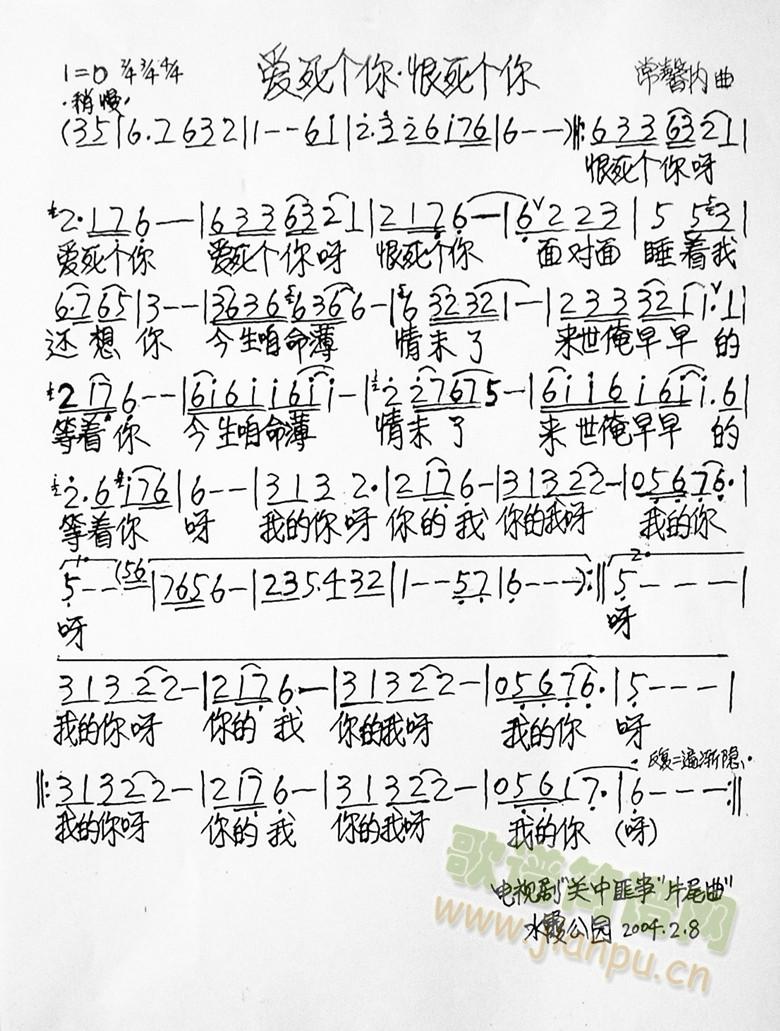 爱死个你·恨死个你
1=D 2/4 3/4 4/4
常馨内 曲
·稍慢·
(35|6.7 632|1--61|2.3 26 176|6---)‖:633 6321|
恨死个你呀
2.176--|633 6321|2176--|6 223|5 53|
爱死个你 爱死个你呀 恨死个你 面对面 睡着我
6.765|3--|3636 6366-|6 32321-|2333 3211.1|
还想你 今生咱命薄 情未了 来世俺早早的
2176--|6161 1611-|2 27675-|6116 1611.6|
等着你 今生咱命薄 情未了 来世俺早早的
2.6 1176|6--|3132.|2176-|313222-|05676.|
等着你 呀 我的你呀 你的我 你的我呀 我的你
1.
2.
5--(56|7656-|235.432|1--57|6---):‖5----|
呀 呀
313222-|2176-|313222-|05676.|5---|
我的你呀 你的我 你的我呀 我的你 呀
反复二遍渐隐.
‖:313222-|2176-|313222-|05617.|6---:‖
我的你呀 你的我 你的我呀 我的你 (呀)
电视剧"关中匪事"片尾曲"
水霞公园 2004.2.8
歌谱简谱网
www.jianpu.cn